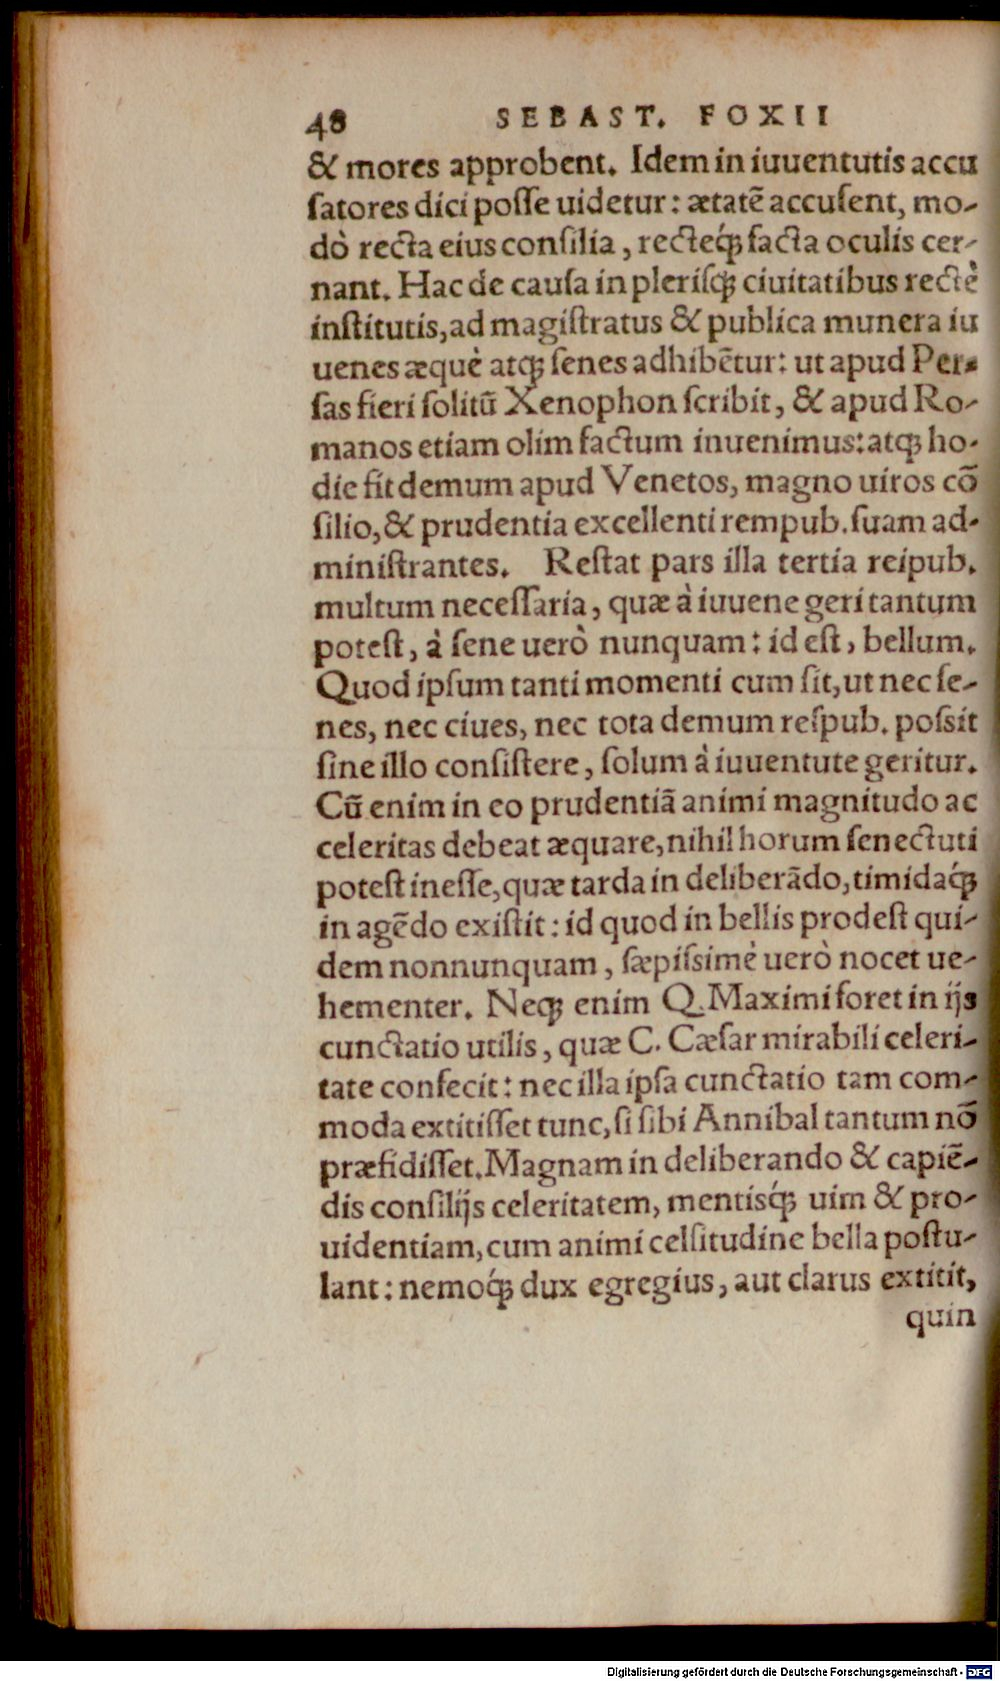 48 SEBAST. FOXII
& mores approbent. Idem in iuuentutis accu
ſatores dici poſſe uidetur: ætatē accuſent, mo-
dò recta eius conſilia, recteq́; facta oculis cer-
nant. Hac de cauſa in pleriſq; ciuitatibus rectè
inſtitutis, ad magiſtratus & publica munera iu
uenes æquè atq; ſenes adhibētur: ut apud Per-
ſas fieri ſolitū Xenophon ſcribit, & apud Ro-
manos etiam olim factum inuenimus: atq; ho-
die fit demum apud Venetos, magno uiros cō
ſilio, & prudentia excellenti rempub. ſuam ad-
miniſtrantes. Reſtat pars illa tertia reipub.
multum neceſſaria, quæ à iuuene geri tantum
poteſt, à ſene uerò nunquam: id eſt, bellum.
Quod ipſum tanti momenti cum ſit, ut nec ſe-
nes, nec ciues, nec tota demum reſpub. poſsit
ſine illo conſiſtere, ſolum à iuuentute geritur.
Cū enim in eo prudentiā animi magnitudo ac
celeritas debeat æquare, nihil horum ſenectuti
poteſt ineſſe, quæ tarda in deliberādo, timidaq́;
in agēdo exiſtit: id quod in bellis prodeſt qui-
dem nonnunquam, ſæpiſsimè uerò nocet ue-
hementer. Neq; enim Q. Maximi foret in ijs
cunctatio utilis, quæ C. Cæſar mirabili celeri-
tate confecit: nec illa ipſa cunctatio tam com-
moda extitiſſet tunc, ſi ſibi Annibal tantum nō
præfidiſſet. Magnam in deliberando & capiē-
dis conſilijs celeritatem, mentisq́; uim & pro-
uidentiam, cum animi celſitudine bella poſtu-
lant: nemoq́; dux egregius, aut clarus extitit,
quin
Digitalisierung gefördert durch die Deutsche Forschungsgemeinschaft - DFG